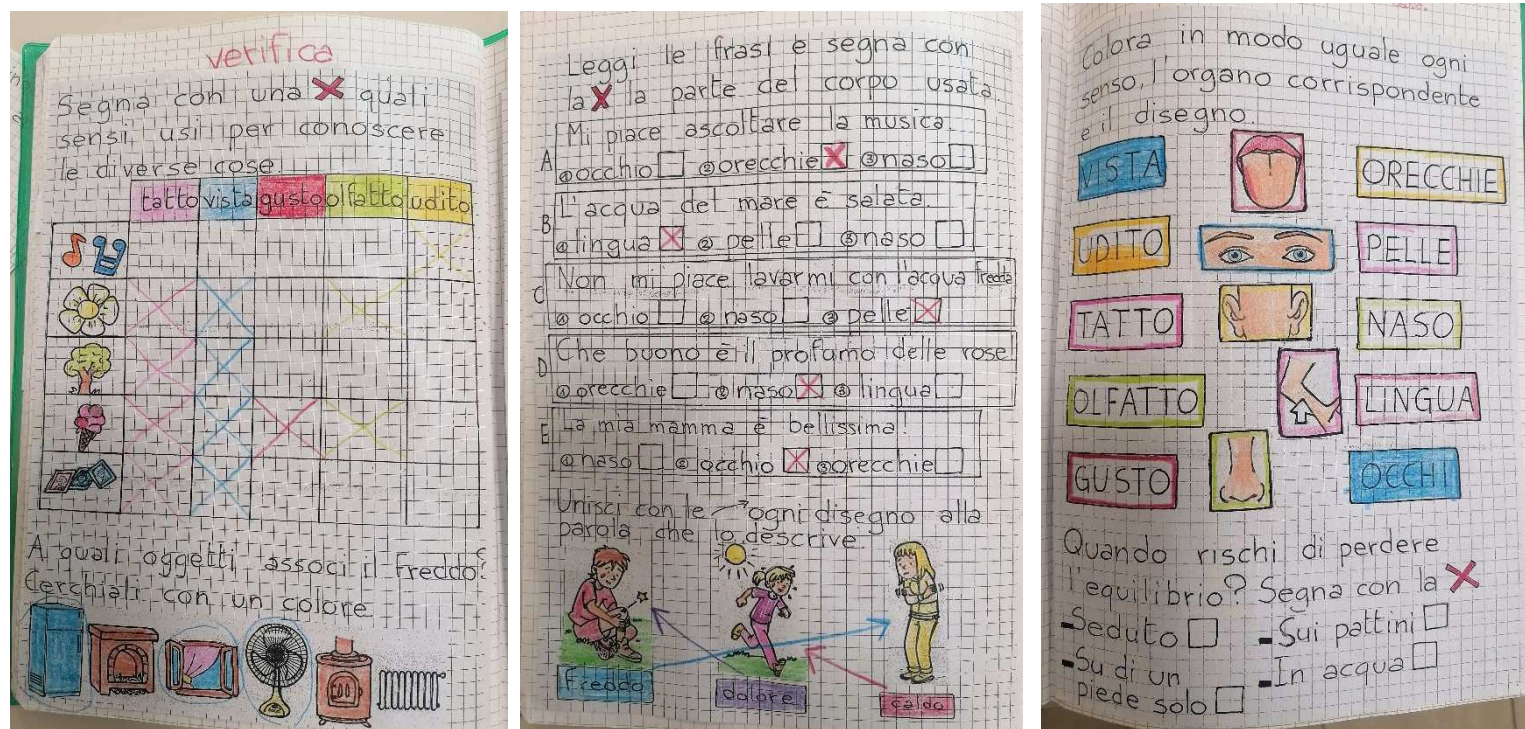 verifica
Segna con una X quali
sensi usi per conoscere
le diverse cose
tatto vista gusto olfatto udito
A quali oggetti associ il freddo?
Cerchiali con un colore
Leggi le frasi e segna con
la X la parte del corpo usata.
Mi piace ascoltare la musica.
A ① occhio ② orecchie X ③ naso
B L'acqua del mare è salata.
① lingua X ② pelle ③ naso
C Non mi piace lavarmi con l'acqua fredda
① occhio ② naso ③ pelle X
D Che buono è il profumo delle rose!
① orecchie ② naso X ③ lingua
E La mia mamma è bellissima!
① naso ② occhio X ③ orecchie
Unisci con le → ogni disegno alla
parola che lo descrive
freddo dolore caldo
Colora in modo uguale ogni
senso, l'organo corrispondente
e il disegno.
VISTA ORECCHIE
UDITO PELLE
TATTO NASO
OLFATTO LINGUA
GUSTO OCCHI
Quando rischi di perdere
l'equilibrio? Segna con la X
- Seduto - Sui pattini
- Su di un - In acqua
piede solo